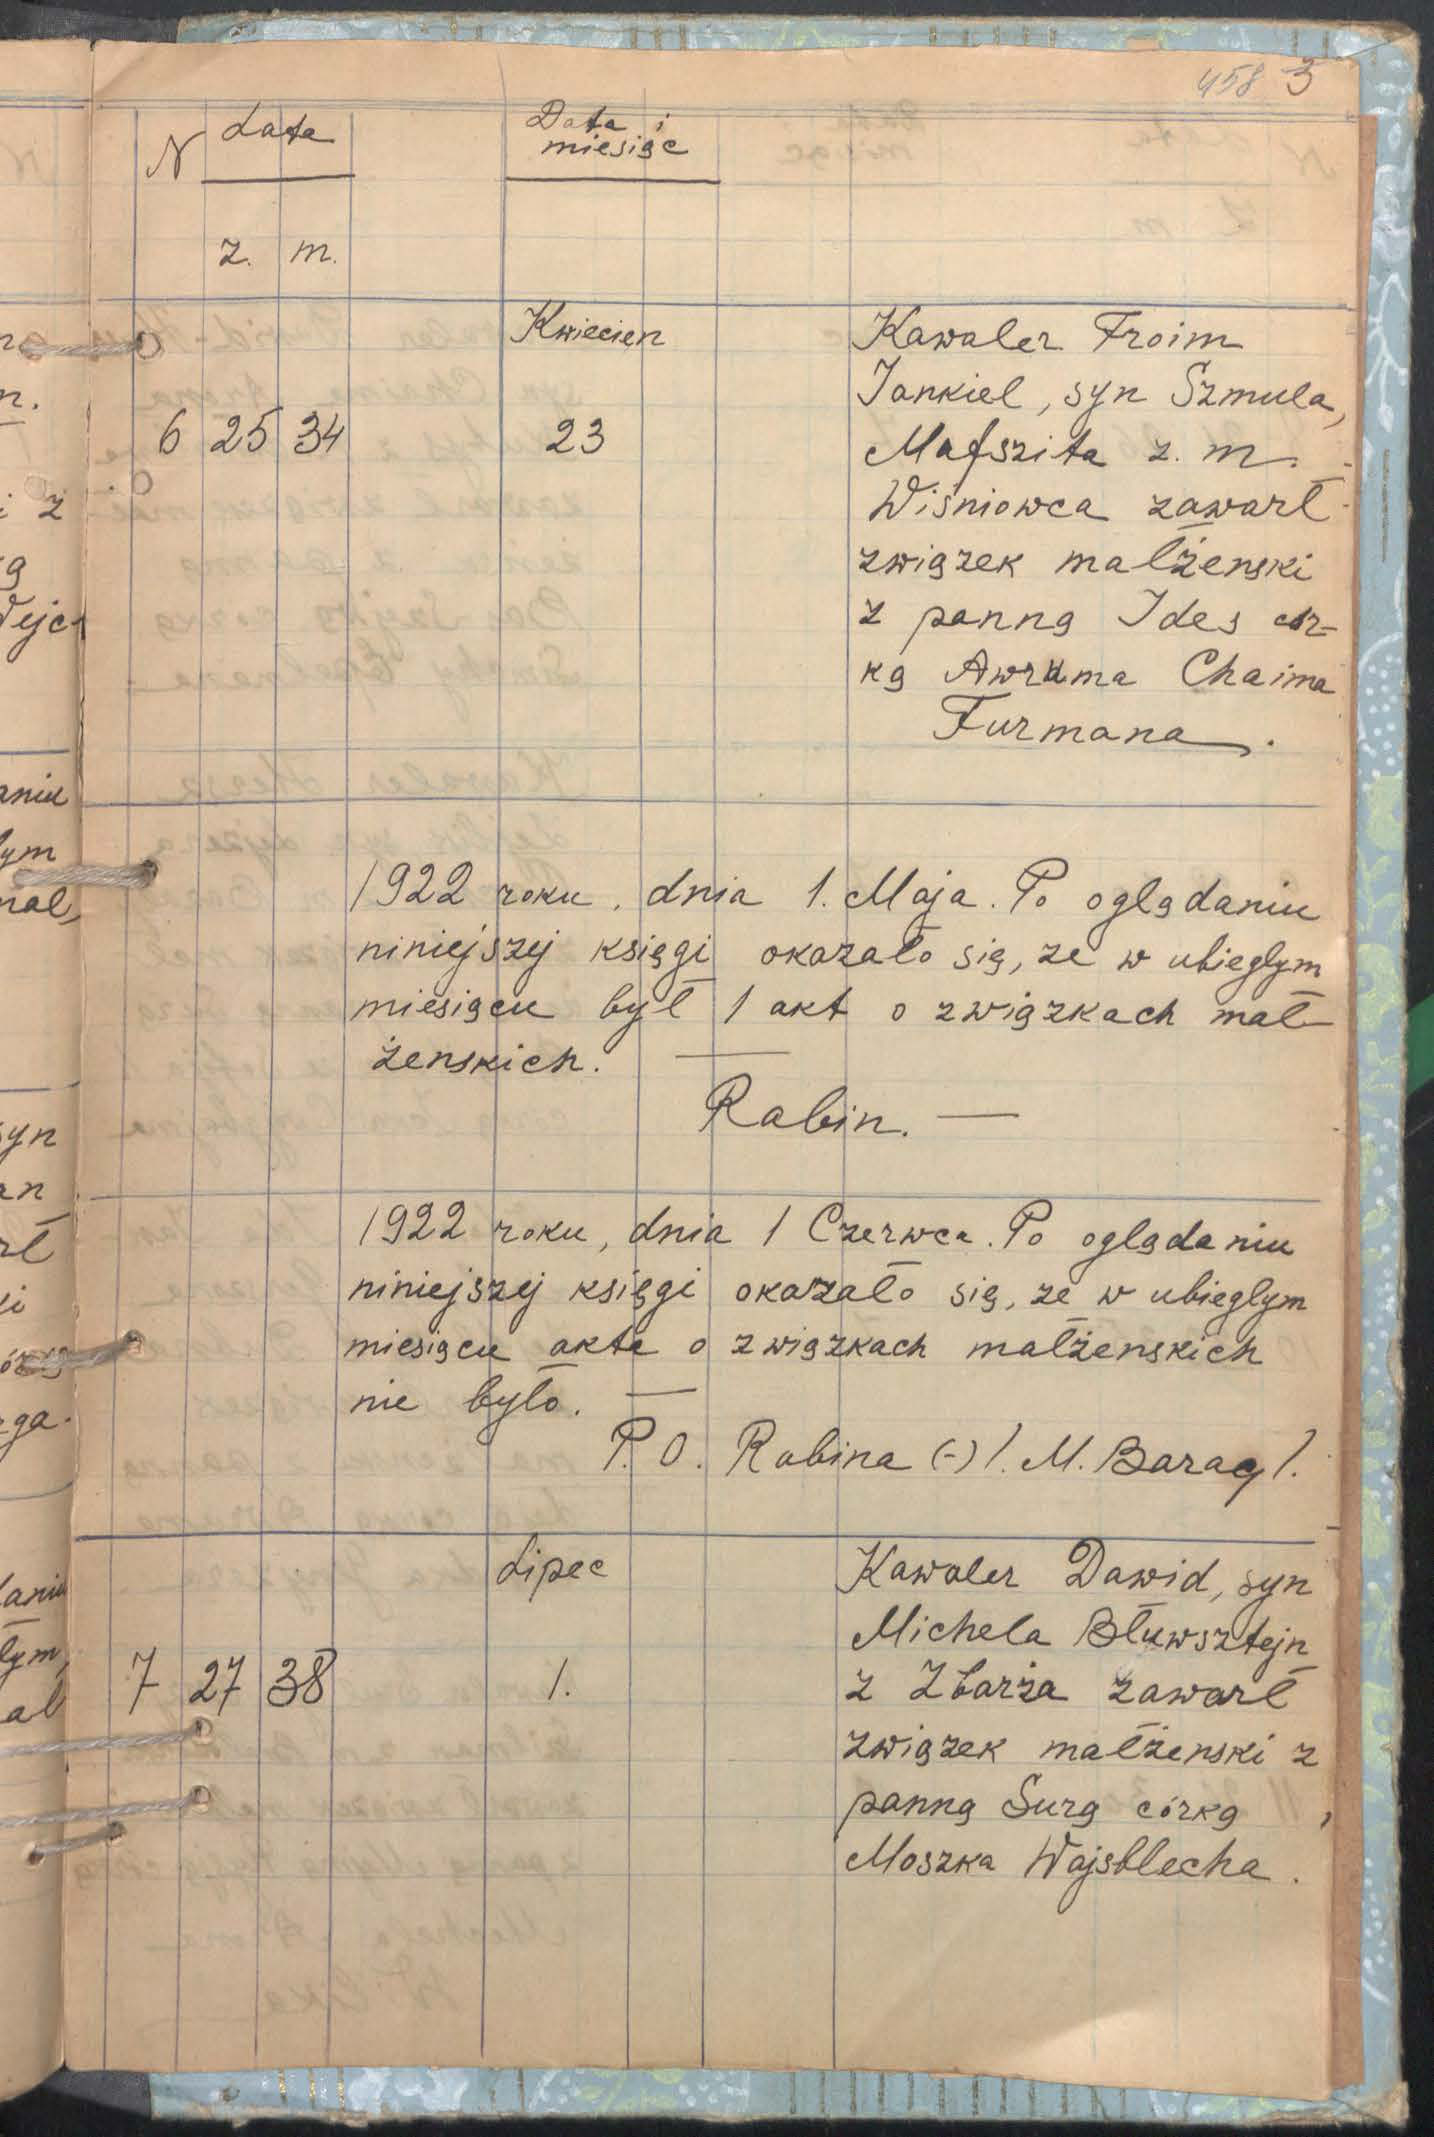 458 3
N Lata Data i
miesiąc
ż. m.
Kwiecien
6 25 34 23
Kawaler Froim
Jankiel, syn Szmula,
Mafszita z. m.
Wiśniowca zawarł
związek małżenski
z panną Ides cór-
ką Awruma Chaima
Furmana.
1922 roku, dnia 1. Maja. Po oglądaniu
niniejszej księgi okazało się, ze w ubieglym
miesiącu był 1 akt o związkach mał-
żenskich. —
Rabin. —
1922 roku, dnia 1 Czerwca. Po oglądaniu
niniejszej księgi okazało się, ze w ubieglym
miesiącu akta o związkach małżenskich
nie było. —
P.O. Rabina (-) /. M. Barag /.
Lipec
7 27 38 1.
Kawaler Dawid, syn
Michela Błuwsztejn
z Zbarża zawarł
związek małżenski z
panną Surą córką
Moszka Wajsblecha.